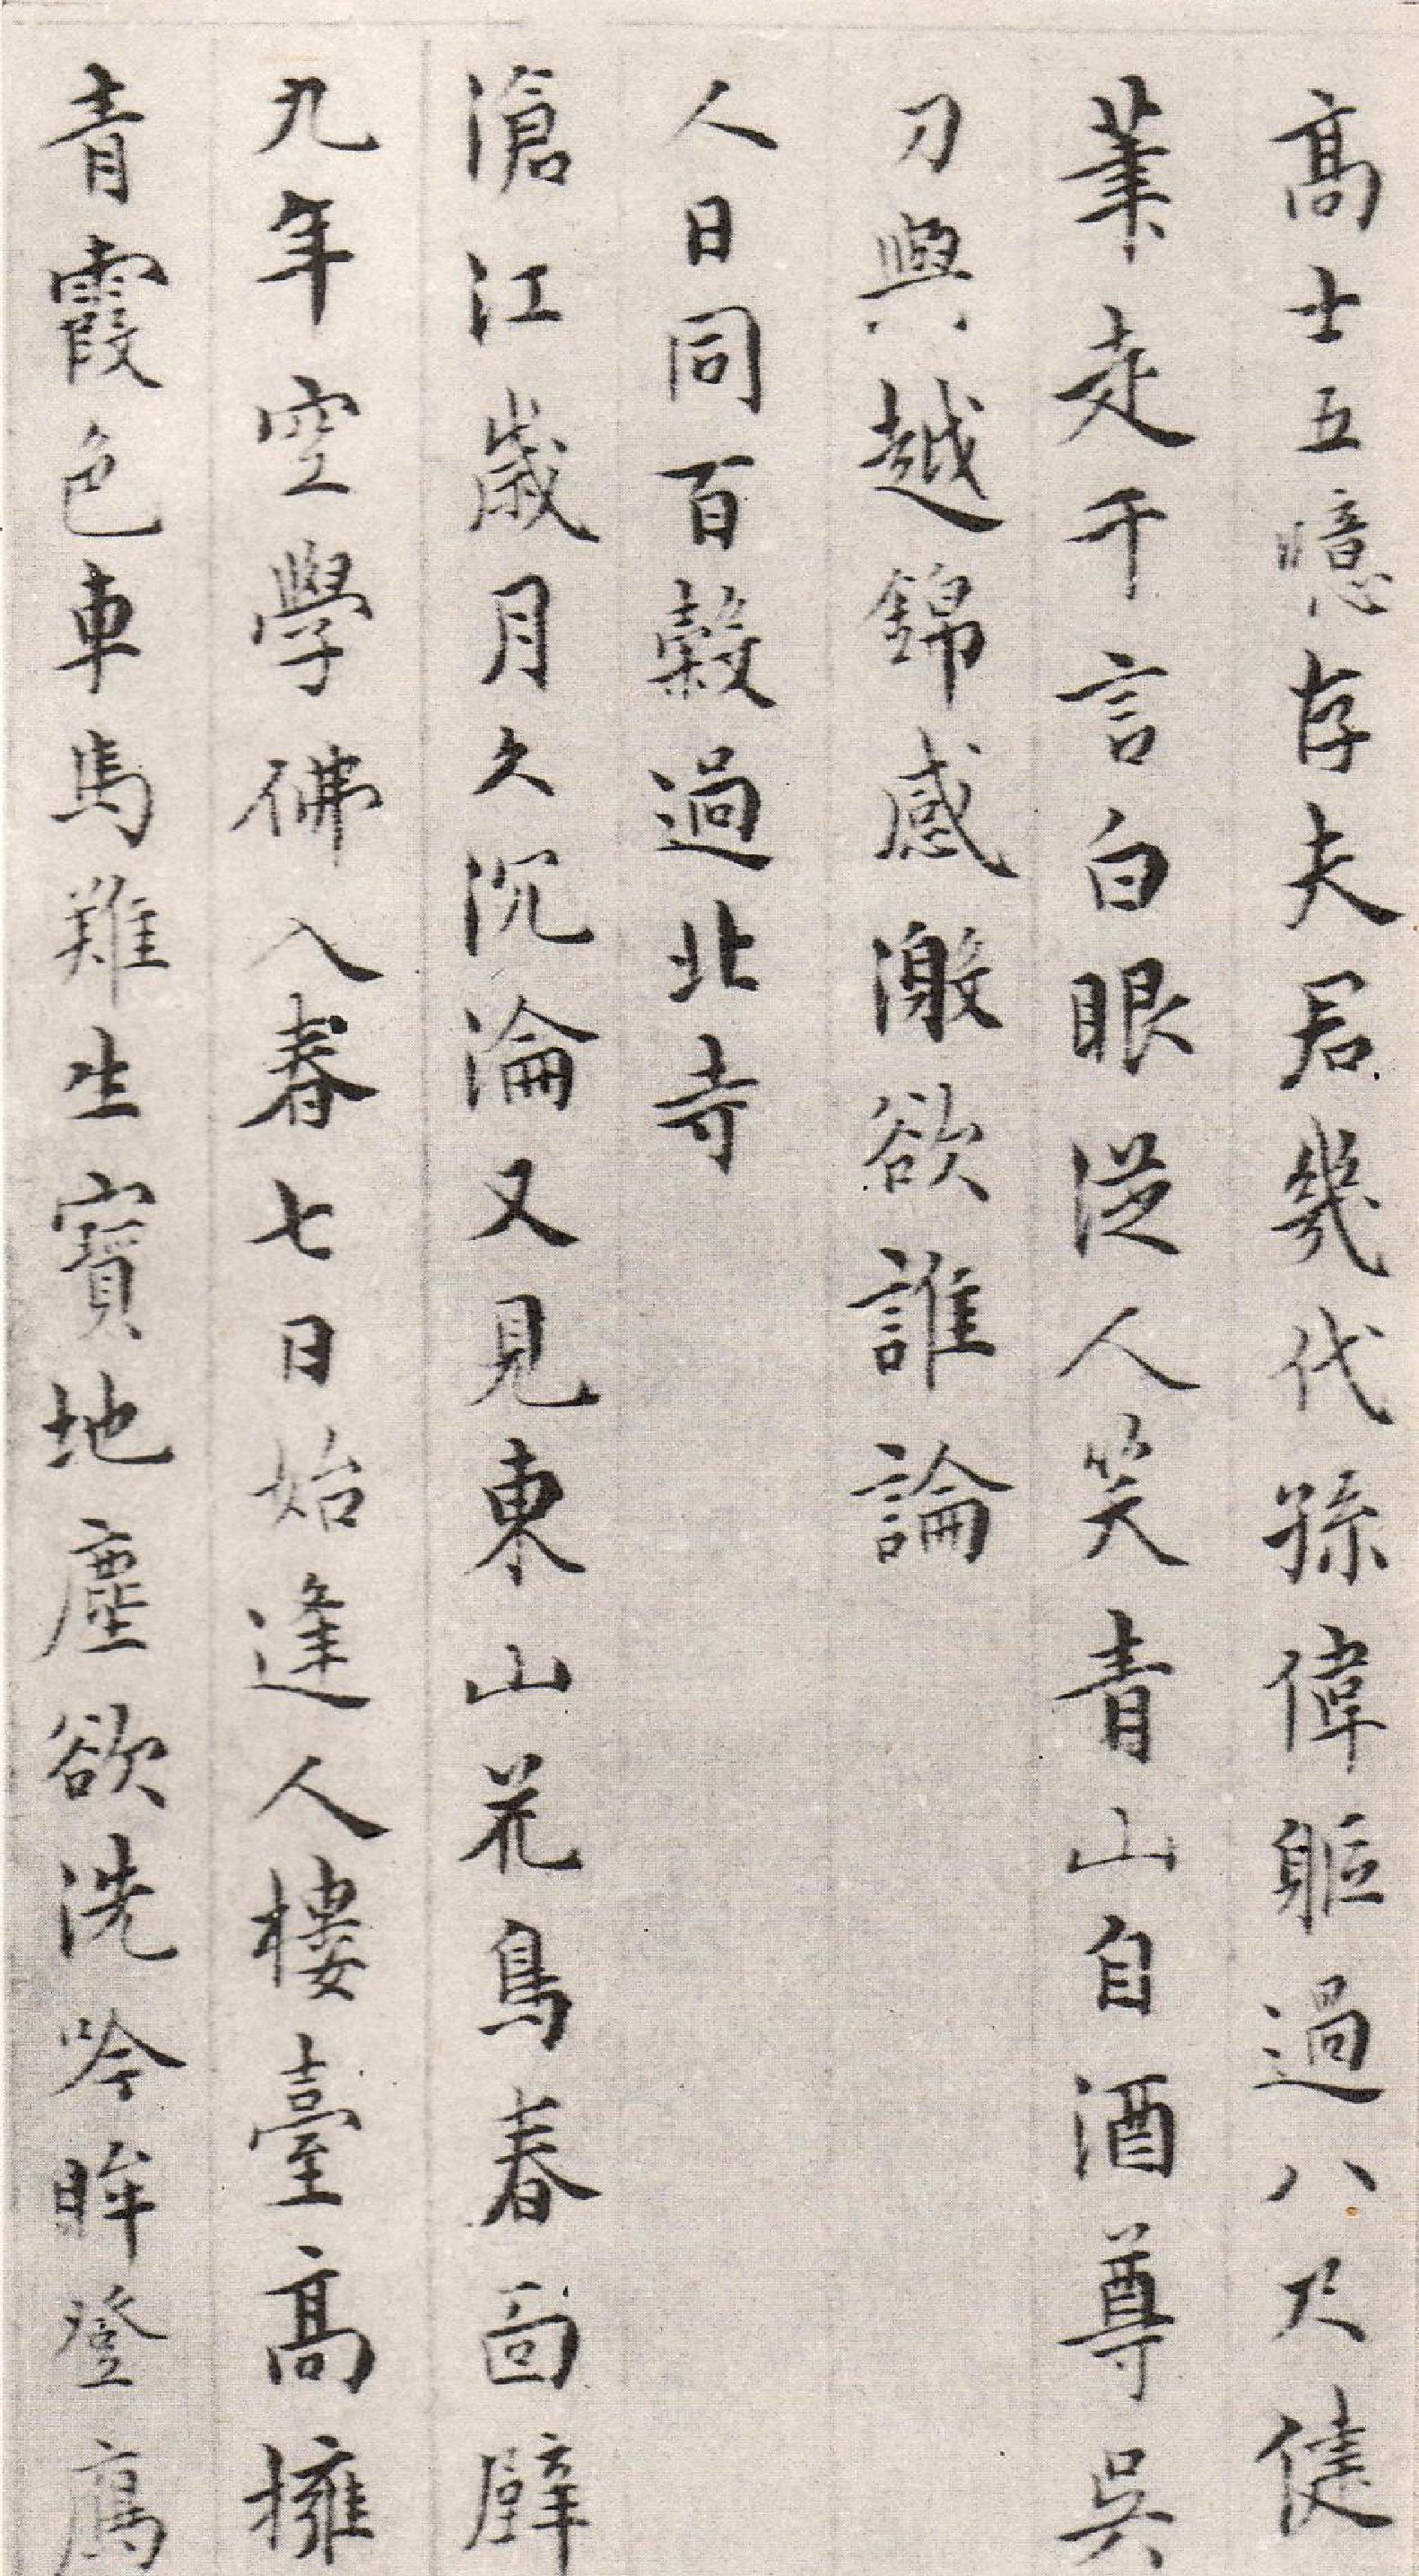 高士五噫存夫君幾代孫偉軀過八尺健
筆走千言白眼従人笑青山自酒尊吳
刀與越錦感激欲誰論
人日同百穀過北寺
滄江歲月久沉淪又見東山花鳥春面壁
九年空學佛入春七日始逢人樓臺高擁
青霞色車馬難生寶地塵欲洗吟眸登鴈